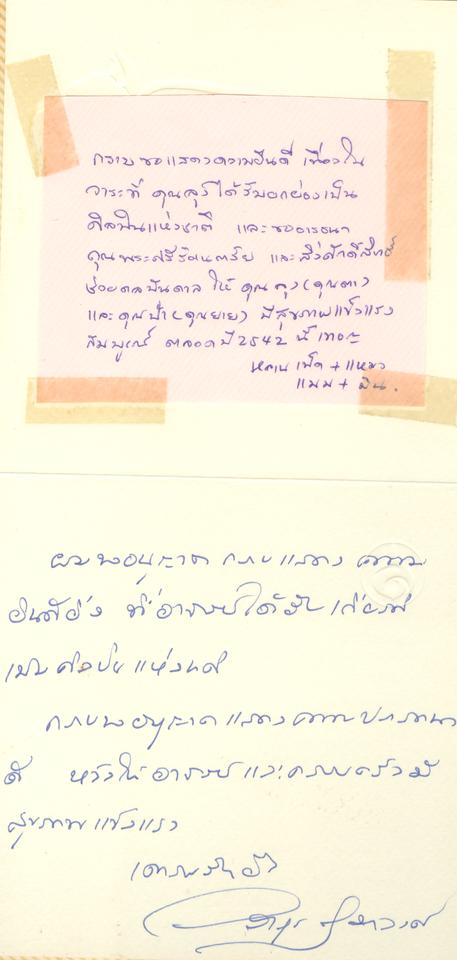 กราบขอแสดงความยินดี เนื่องใน
วาระที่ คุณลุงได้รับยกย่องเป็น
ศิลปินแห่งชาติ และขออาธนา
คุณพระศรีรัตนตรัย และสิ่งศักดิ์สิทธิ์
ช่วยดลบันดาล ให้ คุณลุง (คุณตา)
และคุณป้า (คุณยาย) มีสุขภาพแข็งแรง
สมบูรณ์ ตลอดปี 2542 นี้ เทอญ
หลาน เพ็ด + แหมว
แมม + มิน.
ผมขออนุญาต กราบแสดงความ
ยินดียิ่ง ที่อาจารย์ได้รับเกียรติ
เป็นศิลปินแห่งชาติ
กราบขออนุญาตแสดงความปรารถนา
ดี หวังให้อาจารย์และครอบครัวมี
สุขภาพแข็งแรง
เคารพรักยิ่ง